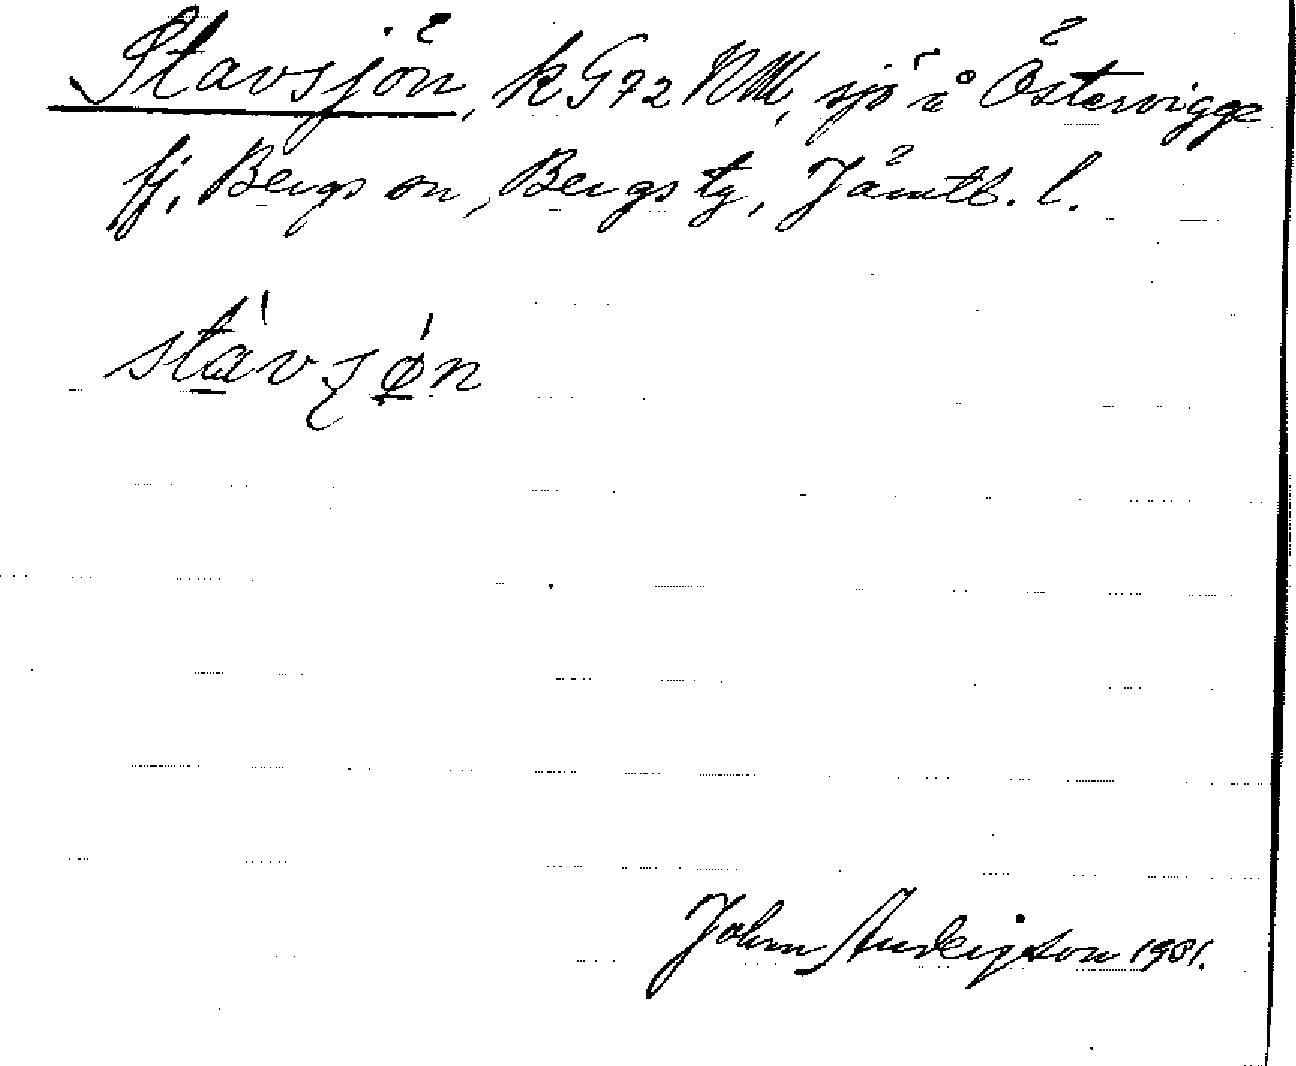 Stavsjön, k G 72 NM, sjö å Östervigge
fj, Bergs sn, Bergs tg, Jämtl. l.
stávʒǿn
John Andersson 1931.